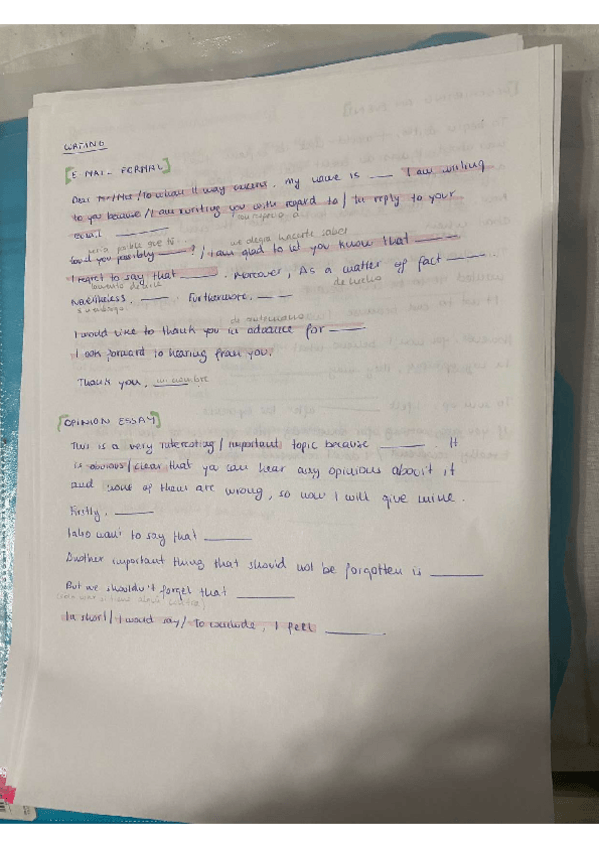 WRITING
[E-MAIL FORMAL]
Dear Mr/Mrs /To whom it may concern. My name is ___ I am writing
to you because/I am writing you with regard to/ In reply to your
email ___
sería posible que tú me alegra hacerte saber
Could you possibly ___? / I am glad to let you know that ___
I regret to say that ___. Moreover, As a matter of fact ___.
lamento decirle de hecho
Nevertheless, ___ Furthermore, ___
sin embargo
de antemano
I would like to thank you in advance for ___
I look forward to hearing from you.
Thank you, mi nombre
[OPINION ESSAY]
This is a very interesting/important topic because ___. It
is obvious/clear that you can hear any opinions about it, it
and none of them are wrong, so now I will give mine.
Firstly, ___
I also want to say that ___
Another important thing that should not be forgotten is ___
But we shouldn't forget that ___
In short/ I would say/ To conclude, I feel ___.